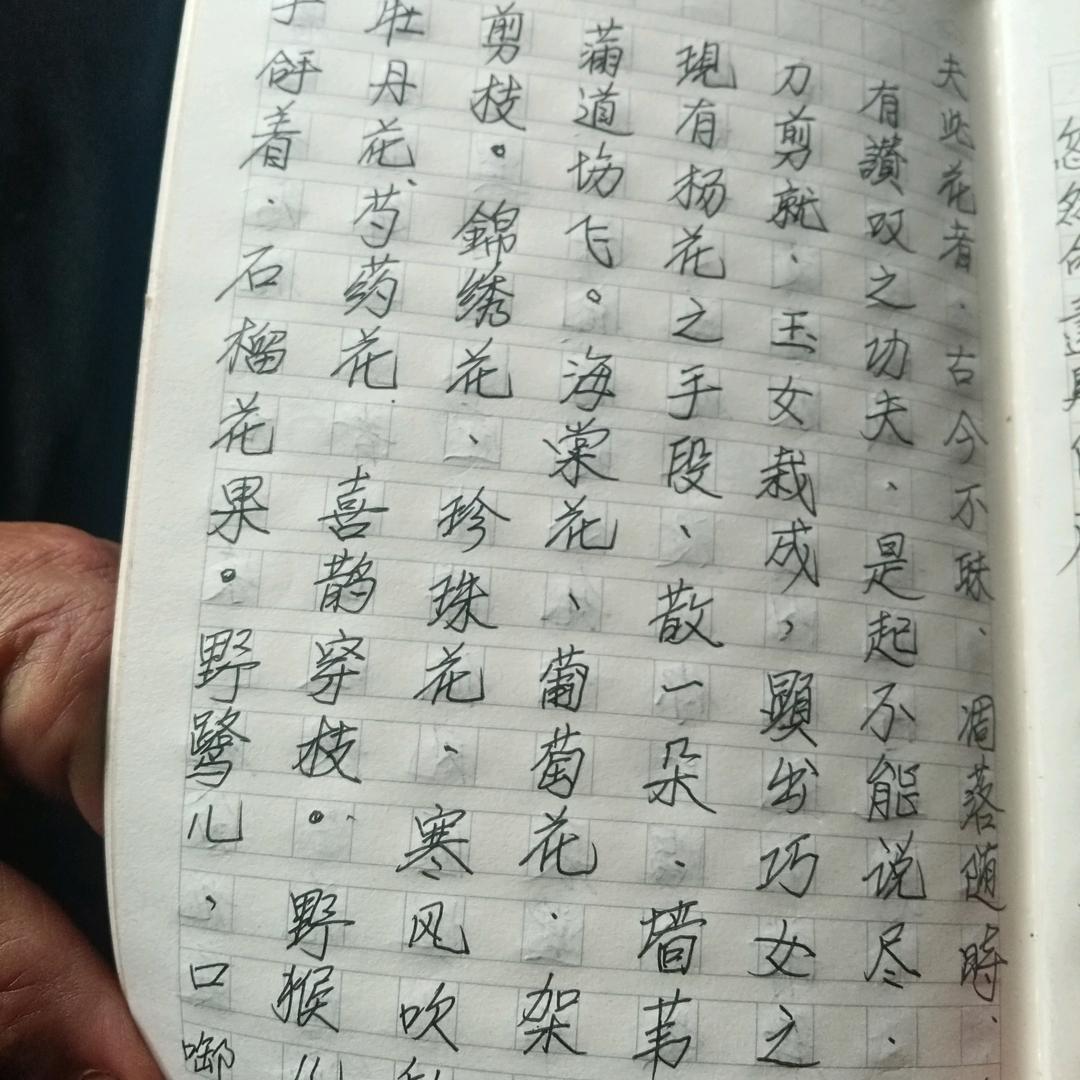 夫此花者．古今不眛．凋落随時．
有讚叹之功夫、是起不能说尽．
刀剪就．玉女栽成，顯出巧女之
現有杨花之手段、散一朵．墙苇
满道协飞。海棠花、葡萄花．架
剪枝。錦绣花、珍珠花、寒风吹
牡丹花、芍药花．喜鹊穿枝。野猴儿
手舒着．石榴花果。野鹭儿，口啣